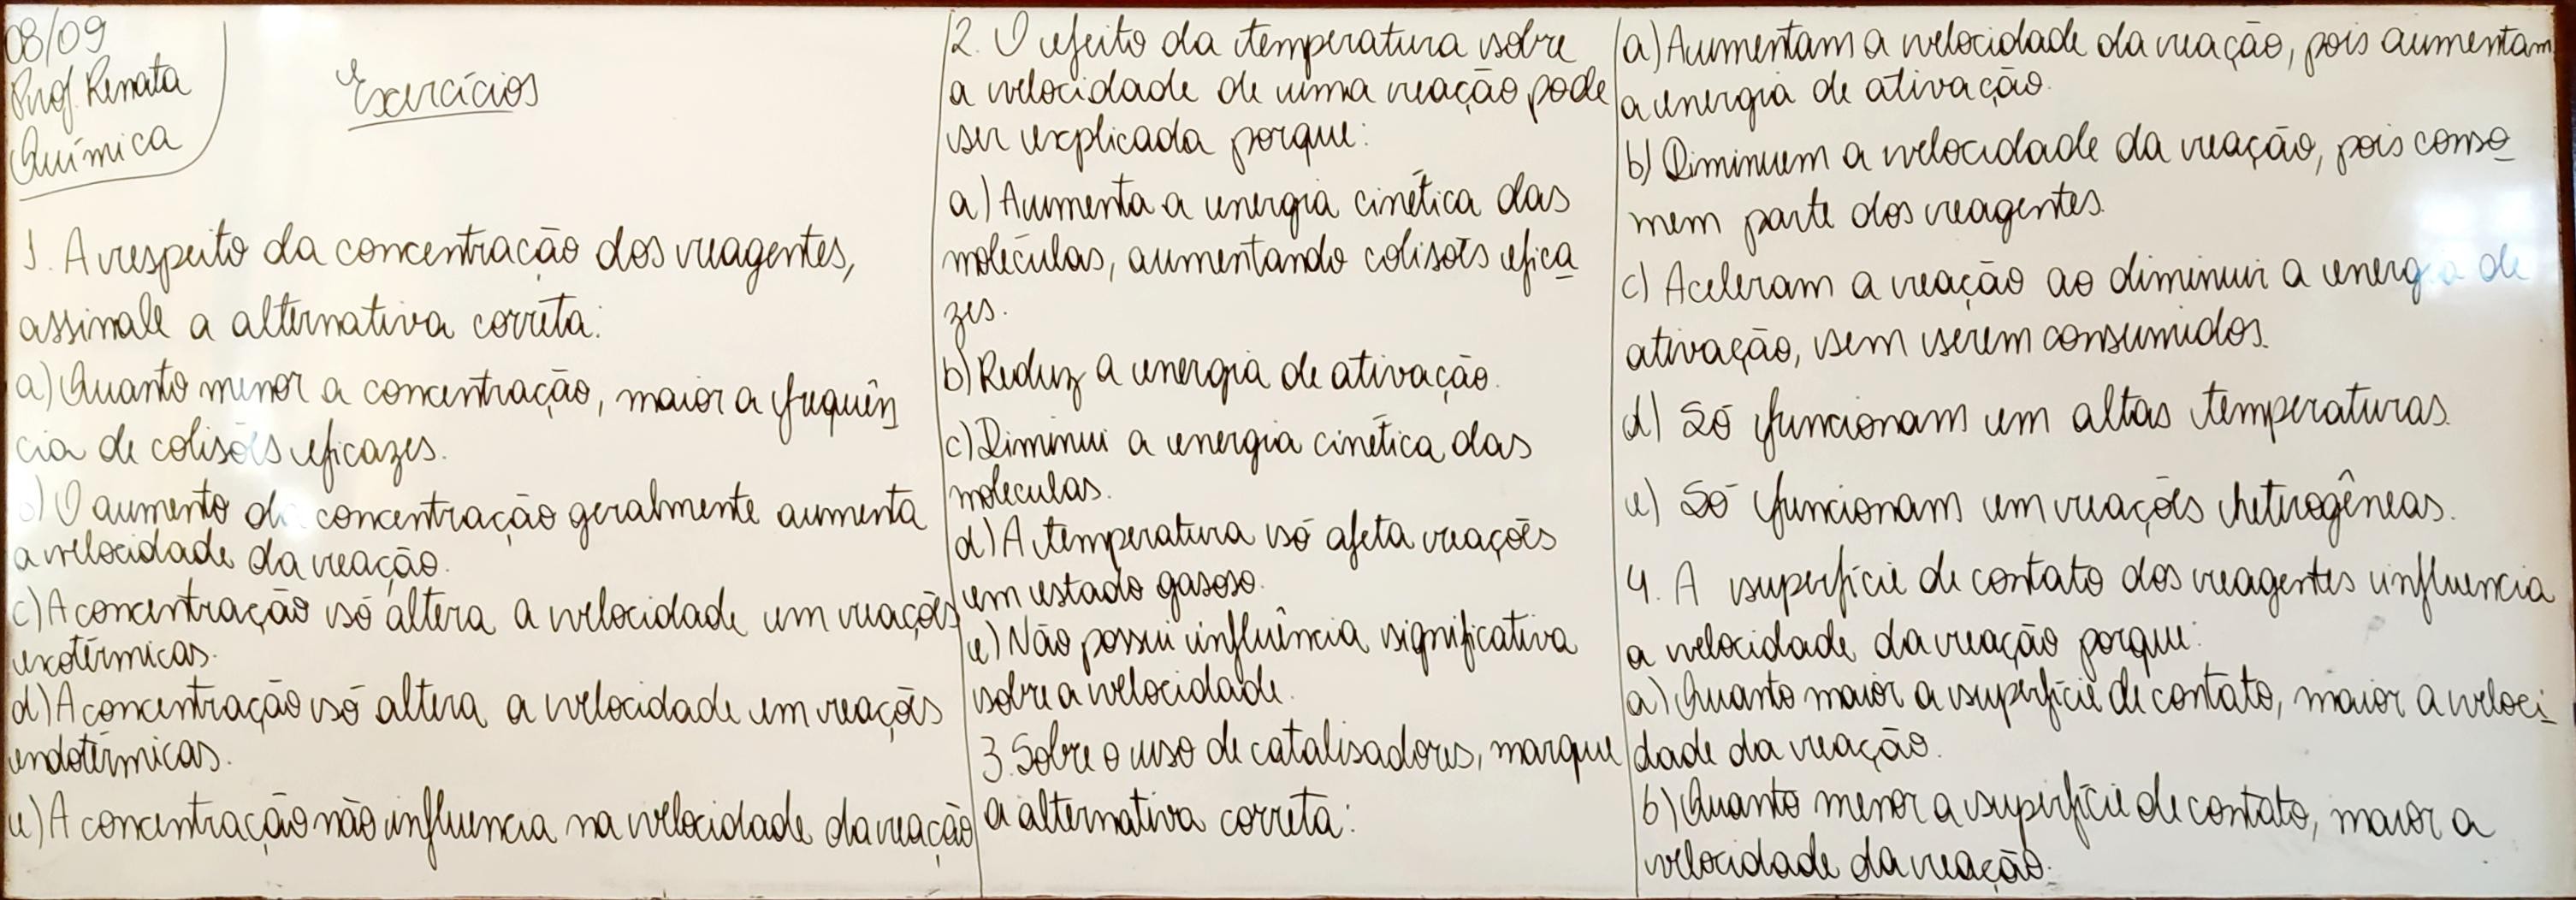 08/09
Prof. Renata
Química
Exercícios
1. A respeito da concentração dos reagentes,
assinale a alternativa correta:
a) Quanto menor a concentração, maior a frequên
cia de colisões eficazes.
b) O aumento da concentração geralmente aumenta
a velocidade da reação.
c) A concentração só altera a velocidade em reações
exotérmicas.
d) A concentração só altera a velocidade em reações
endotérmicas.
e) A concentração não influencia na velocidade da reação
2. O efeito da temperatura sobre
a velocidade de uma reação pode
ser explicada porque:
a) Aumenta a energia cinética das
moléculas, aumentando colisões efica
zes.
b) Reduz a energia de ativação.
c) Diminui a energia cinética das
moleculas.
d) A temperatura só afeta reações
em estado gasoso.
e) Não possui influência significativa
sobre a velocidade.
3. Sobre o uso de catalisadores, marque
a alternativa correta:
a) Aumentam a velocidade da reação, pois aumentam
a energia de ativação.
b) Diminuem a velocidade da reação, pois conso
mem parte dos reagentes.
c) Aceleram a reação ao diminuir a energia de
ativação, sem serem consumidos.
d) Só funcionam em altas temperaturas.
e) Só funcionam em reações heterogêneas.
4. A superfície de contato dos reagentes influencia
a velocidade da reação porque:
a) Quanto maior a superfície de contato, maior a veloci
dade da reação.
b) Quanto menor a superfície de contato, maior a
velocidade da reação.